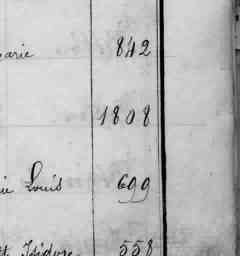 arie 842
1808
Louis 699
Isidore 558